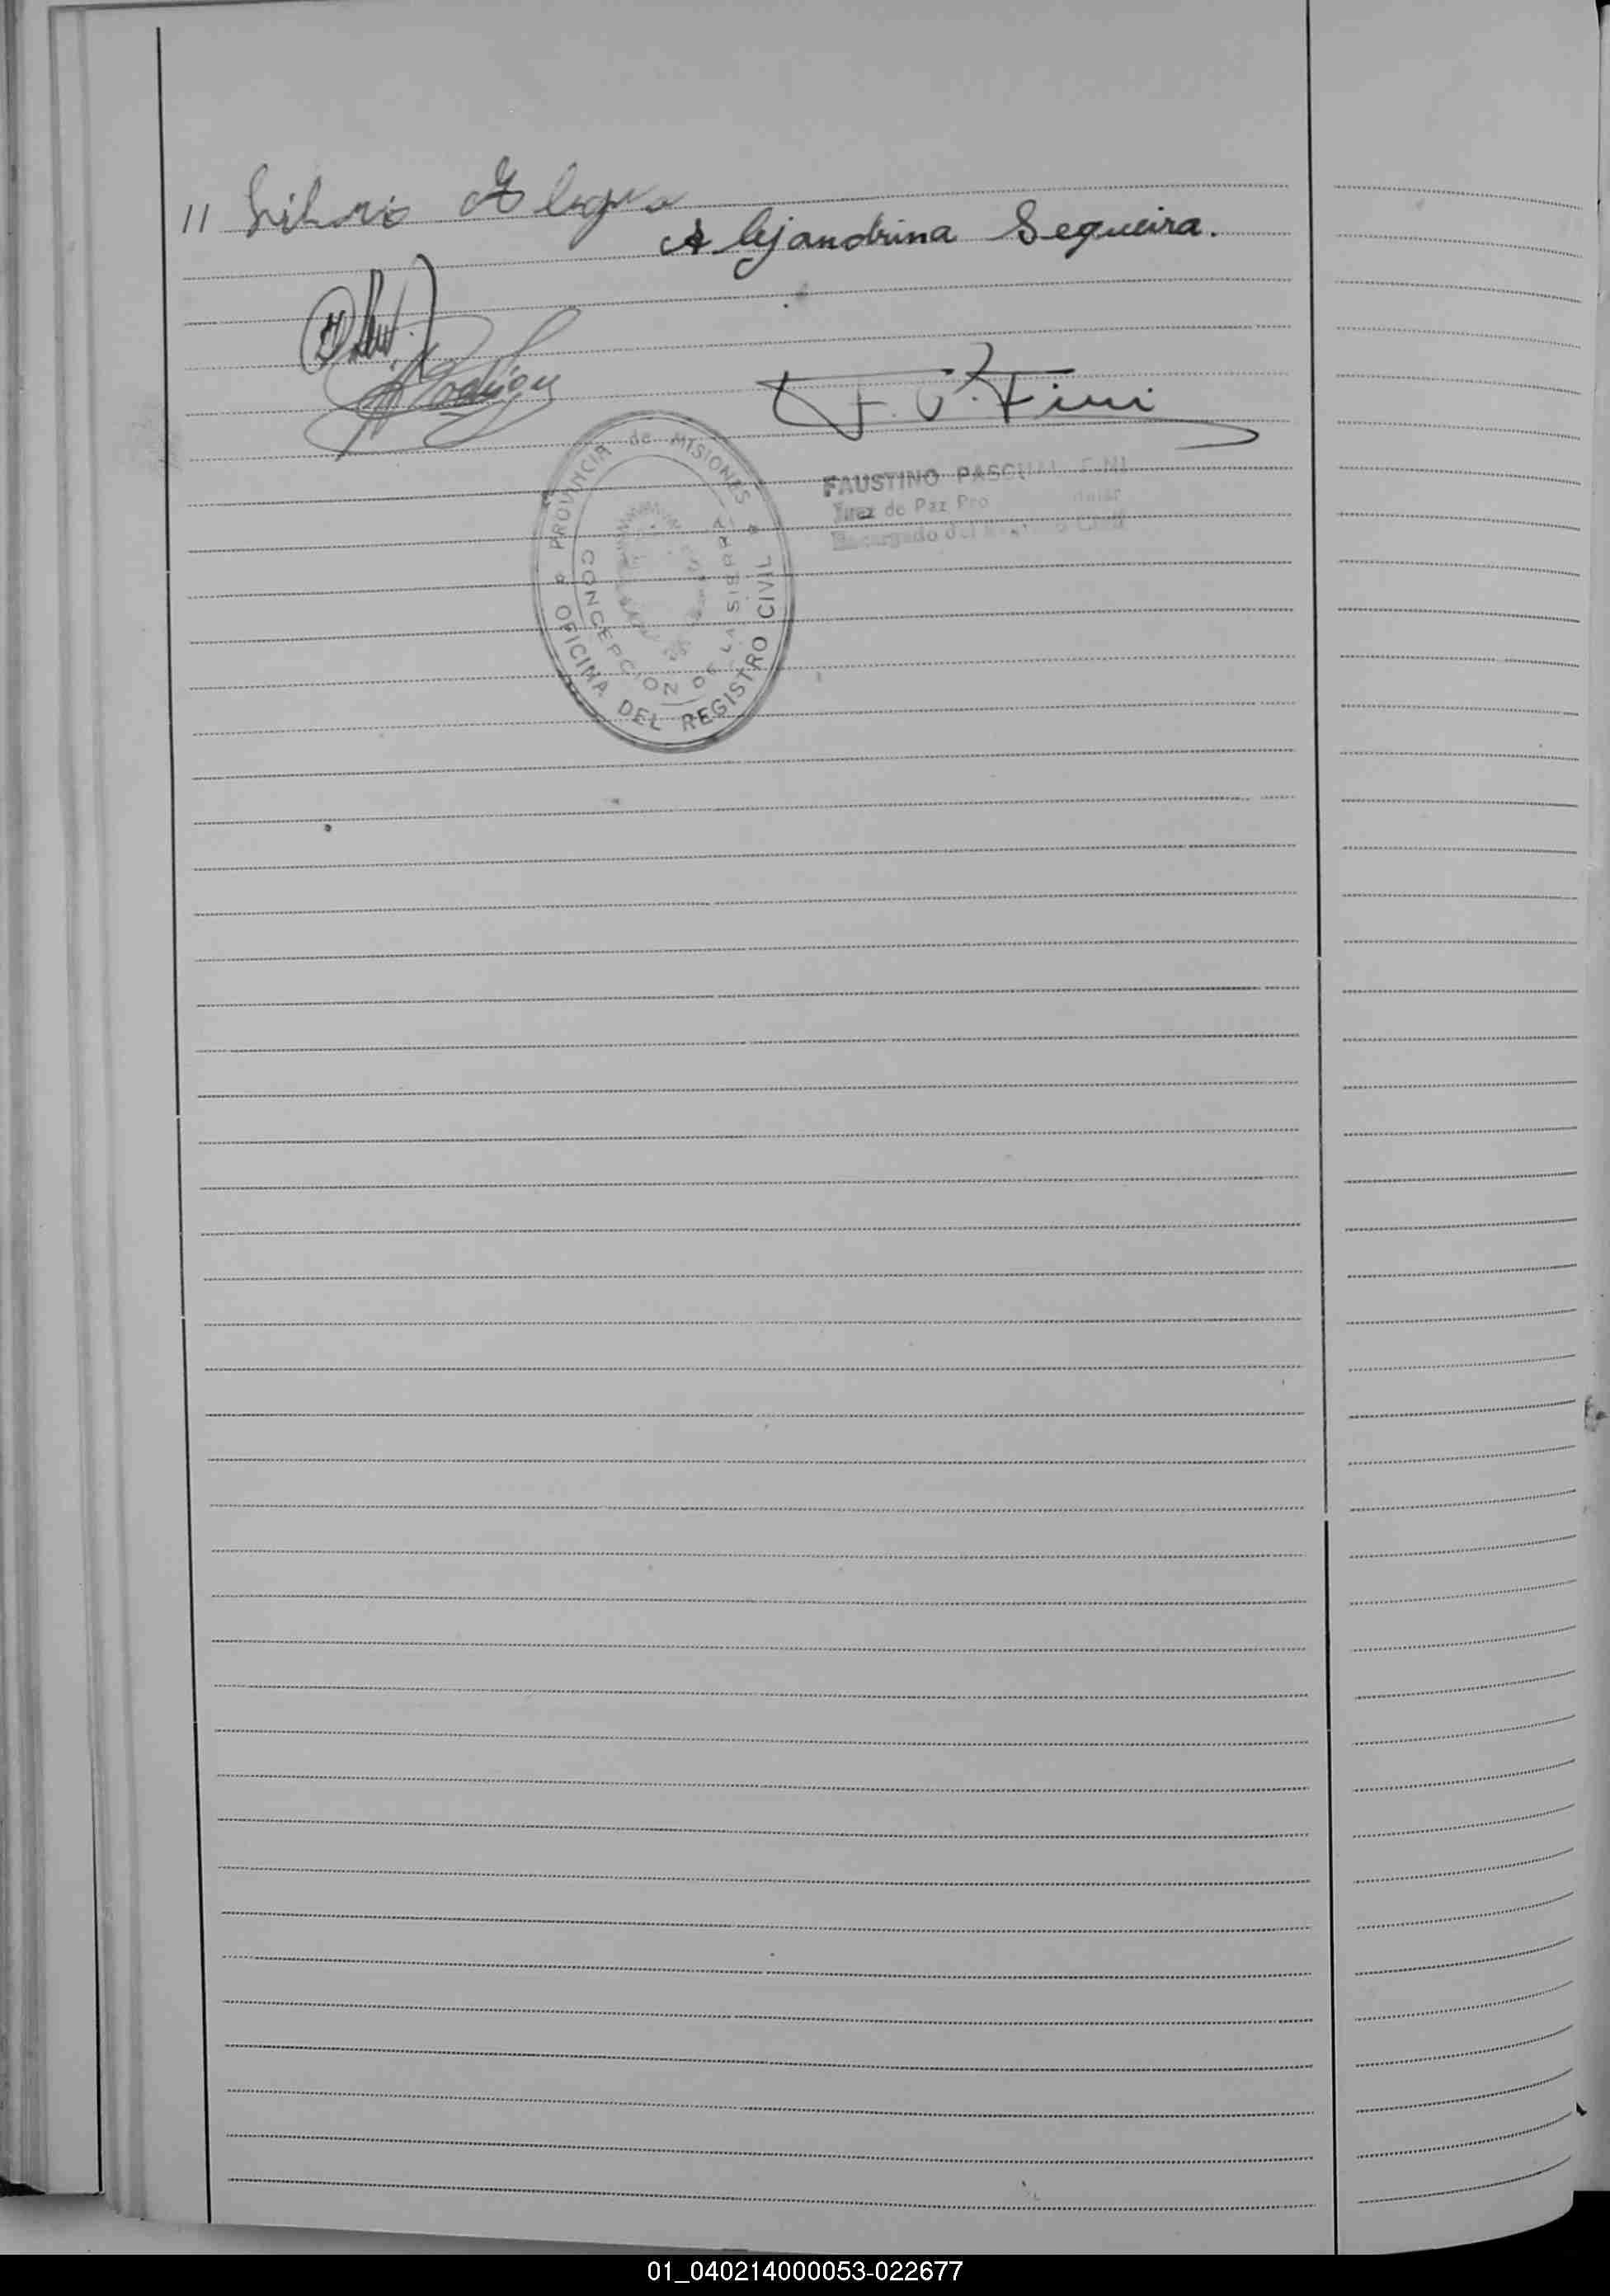 11 Silvrio Alegre
Alejandrina Sequeira.
Rodrigu
F. P. Fini
PROVINCIA de MISIONES
OFICINA DEL REGISTRO CIVIL
CONCEPCION DE LA SIERRA
FAUSTINO PASCUAL FINI
Juez de Paz
Encargado del Civil
01_040214000053-022677